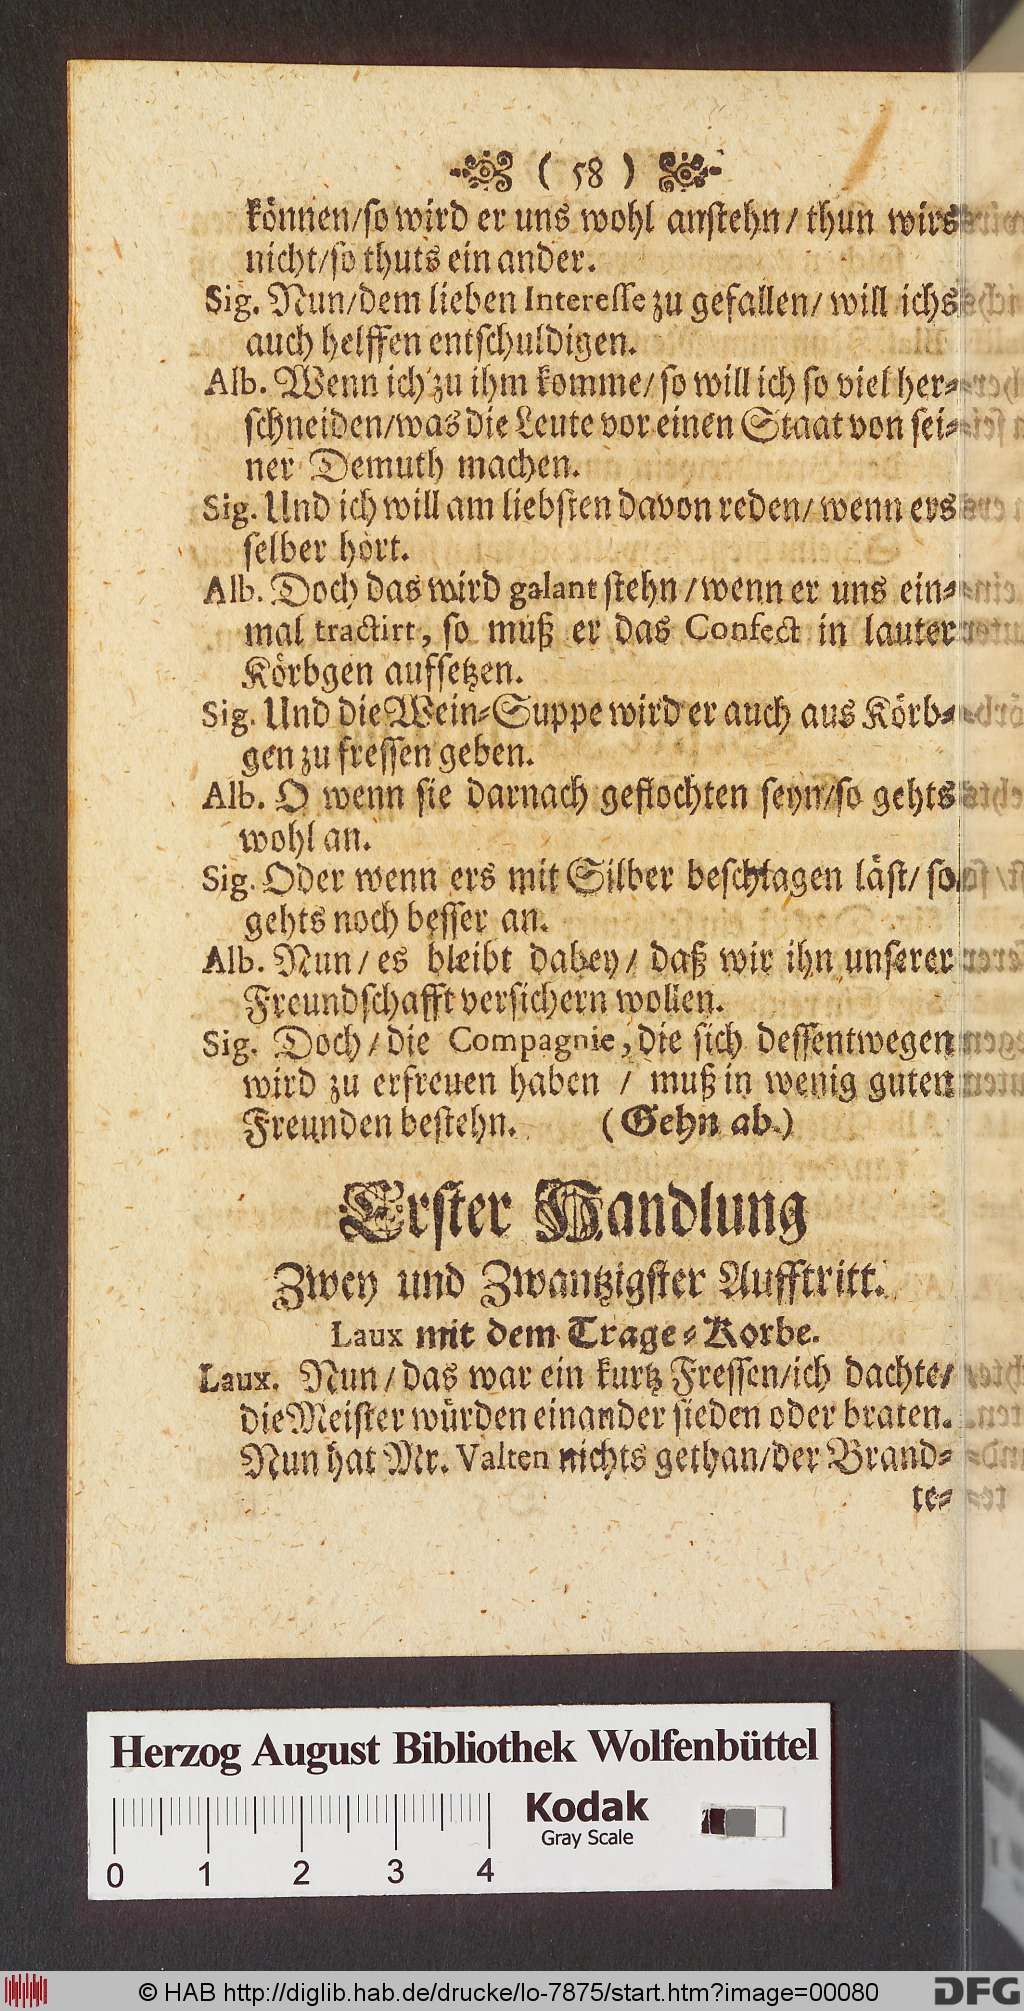 ( 58 )
können/so wird er uns wohl anstehn/ thun wirs
nicht/so thuts ein ander.
Sig. Nun/dem lieben Interesse zu gefallen/ will ichs
auch helffen entschuldigen.
Alb. Wenn ich zu ihm komme/ so will ich so viel her-
schneiden/was die Leute vor einen Staat von sei-
ner Demuth machen.
Sig. Und ich will am liebsten davon reden/ wenn ers
selber hört.
Alb. Doch das wird galant stehn /wenn er uns ein-
mal tractirt, so muß er das Confect in lauter
Körbgen aufsetzen.
Sig. Und die Wein-Suppe wird er auch aus Körb-
gen zu fressen geben.
Alb. O wenn sie darnach geflochten seyn/so gehts
wohl an.
Sig. Oder wenn ers mit Silber beschlagen läst/ so
gehts noch besser an.
Alb. Nun/ es bleibt dabey/ daß wir ihn unserer
Freundschafft versichern wollen.
Sig. Doch/die Compagnie, die sich dessentwegen
wird zu erfreuen haben / muß in wenig guten
Freunden bestehn. (Gehn ab.)
Erster Handlung
Zwey und Zwantzigster Aufftritt.
Laux mit dem Trage-Korbe.
Laux. Nun/das war ein kurtz Fressen/ich dachte/
die Meister würden einander sieden oder braten.
Nun hat Mr. Valten nichts gethan/der Brand-
te-
Herzog August Bibliothek Wolfenbüttel
Kodak
Gray Scale
0 1 2 3 4
© HAB http://diglib.hab.de/drucke/lo-7875/start.htm?image=00080
DFG